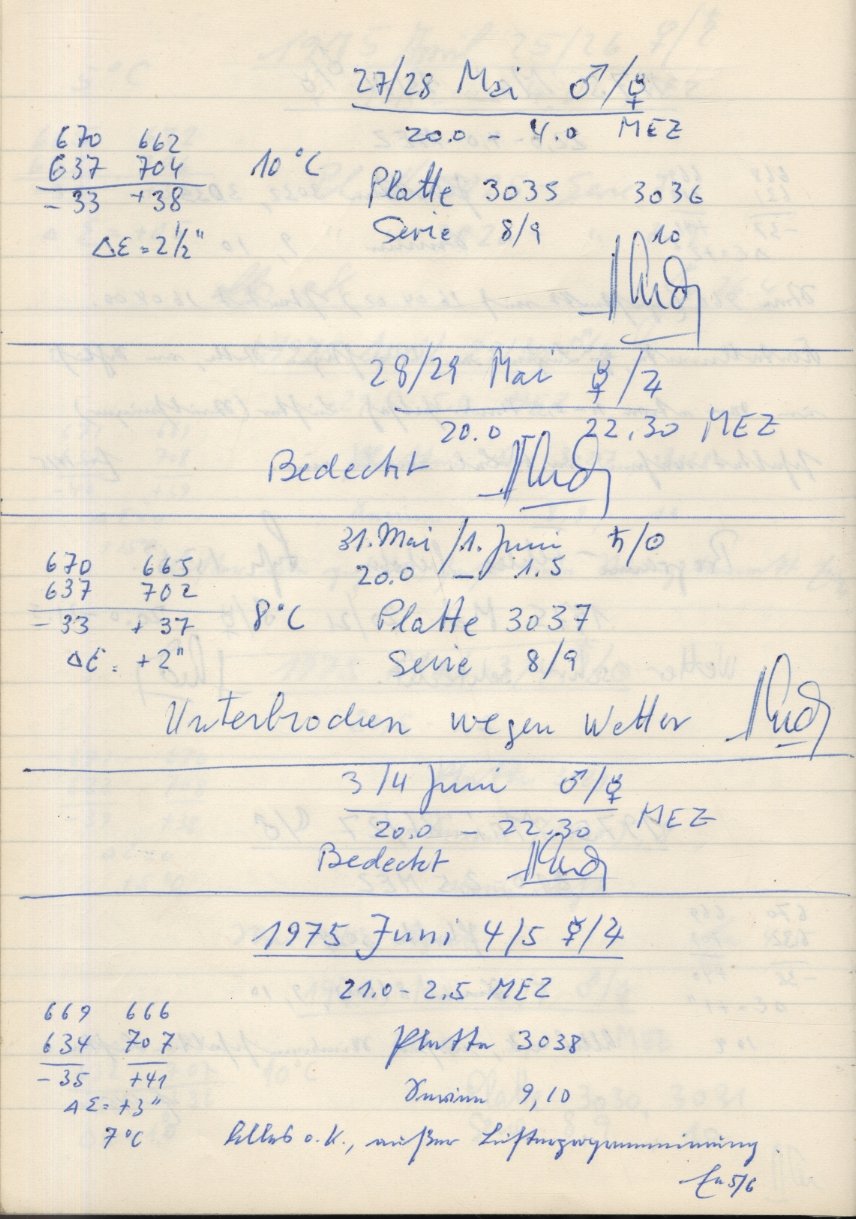 27/28 Mai ♂/☿
20.0 - 4.0 MEZ
670 662
637 704
-33 +38
10°C
Platte 3035 3036
Serie 8/9 10
ΔE = 2 1/2"
28/29 Mai ☿/♃
20.0 - 22.30 MEZ
Bedeckt
31. Mai /1. Juni ♄/☉
20.0 - 1.5
670 665
637 702
-33 +37
8°C
Platte 3037
ΔE = +2"
Serie 8/9
Unterbrochen wegen Wetter
3/4 Juni ♂/☿
20.0 - 22.30 MEZ
Bedeckt
1975 Juni 4/5 ☿/♃
21.0 - 2.5 MEZ
669 666
634 707
-35 +41
Platte 3038
ΔE = +3"
Serien 9, 10
7°C
alles o.k., außer
5/6